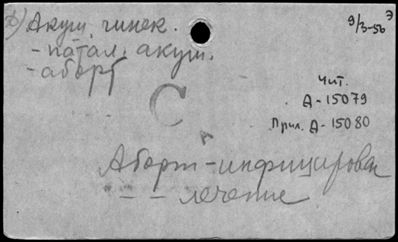 р) Акуш. гинек.
9/3-56 Э
- патал. акуш.
- аборт
Чит.
А-15079
Прил. А-15080
С
Аборт - инфицирован
- - лечение